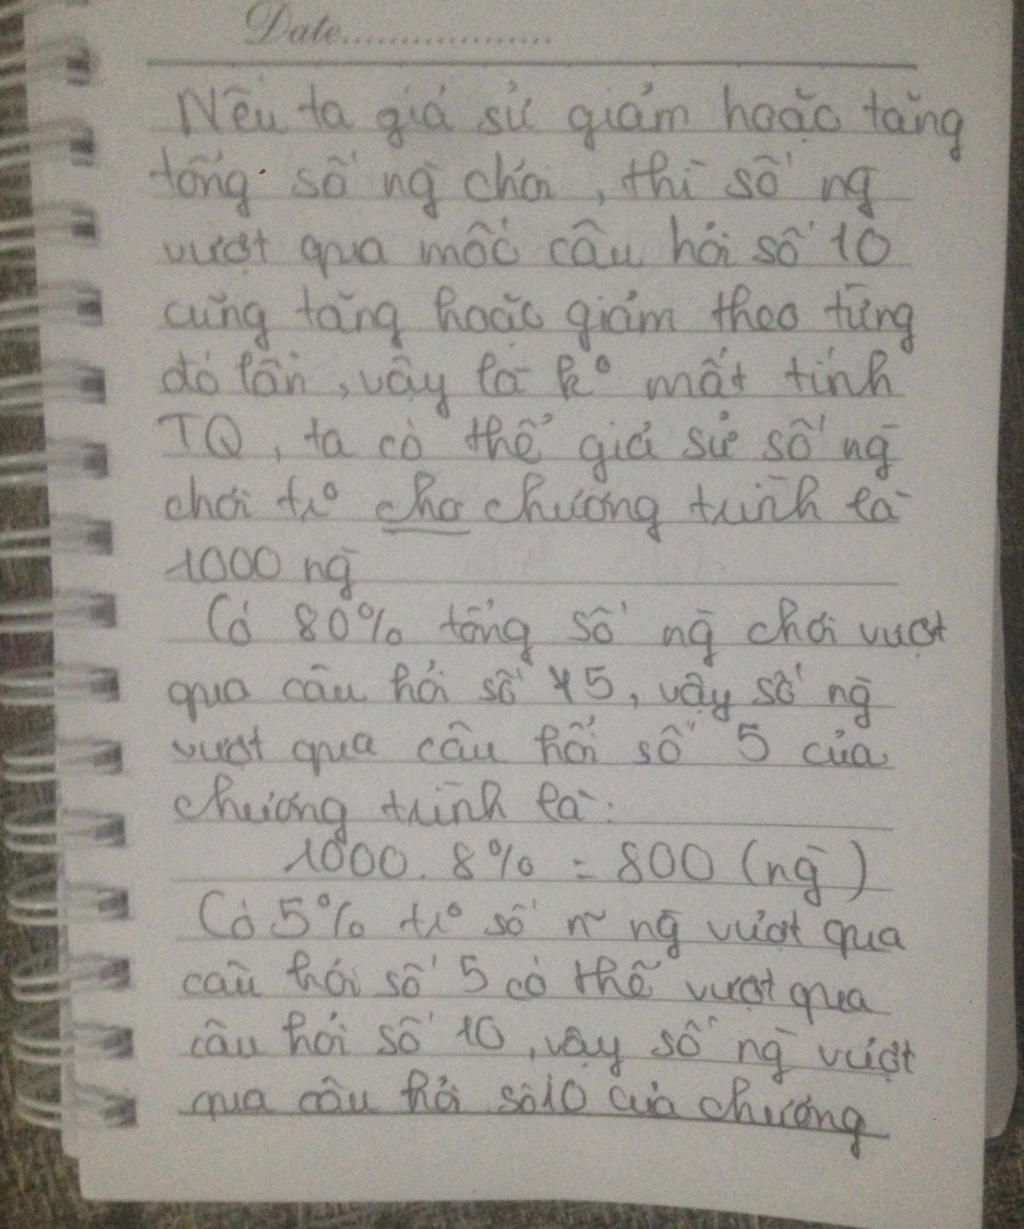 Date..................
Nếu ta giả sử giảm hoặc tăng
tổng số ng̃ chơi, thì số ng̃
vượt qua mốc câu hỏi số 10
cũng tăng hoặc giảm theo từng
đó lần, vậy là k° mất tính
TQ, ta có thể giả sử số ng̃
chơi tr° cho chương trình là
1000 ng̃
Có 80% tổng số ng̃ chơi vượt
qua câu hỏi số 5, vậy số ng̃
vượt qua câu hỏi số 5 của
chương trình là:
1000. 8% = 800 (ng̃)
Có 5% tr° số n~ ng̃ vượt qua
câu hỏi số 5 có thể vượt qua
câu hỏi số 10, vậy số ng̃ vượt
qua câu hỏi số 10 của chương